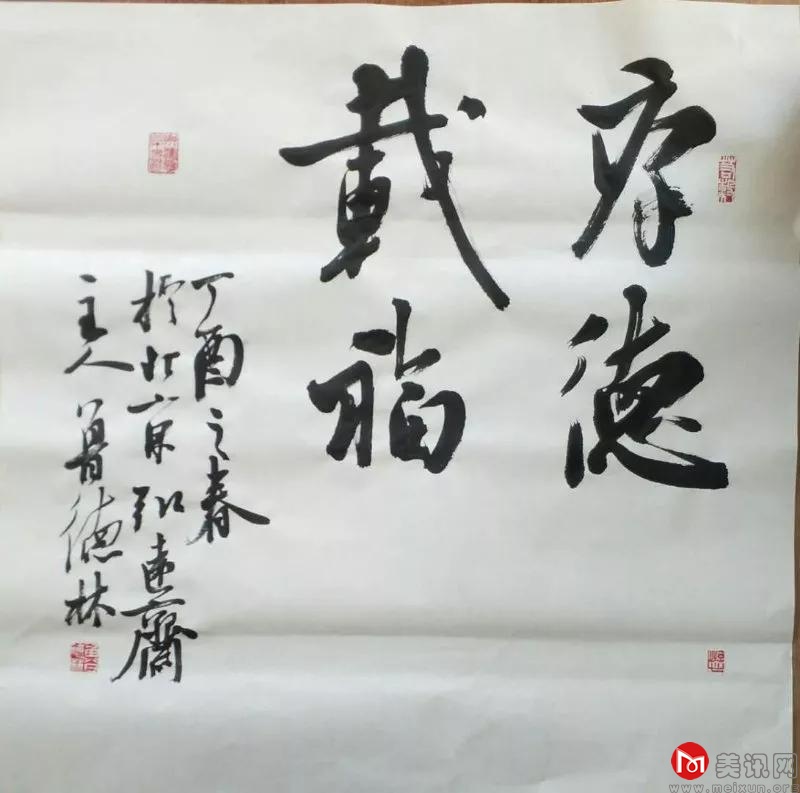 厚德
載福
丁酉之春
於北京弘齋
主人德林
美讯网
www.meixun.org